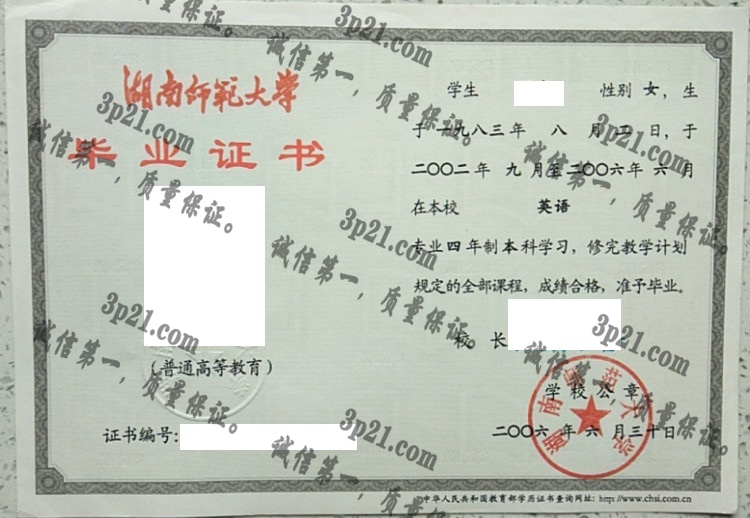 湖南师范大学
毕业证书
(普通高等教育)
证书编号:
学生 性别 女, 生
于一九八三年 八 月二日, 于
二〇〇二年 九 月至二〇〇六年 六 月
在本校 英语
专业四年制本科学习, 修完教学计划
规定的全部课程, 成绩合格, 准予毕业。
校 长
学校公章
湖南师范大学
二〇〇六 年 六 月三十日
中华人民共和国教育部学历证书查询网址: http://www.chsi.com.cn
3p21.com
诚信第一,质量保证。
3p21.com
诚信第一,质量保证。
3p21.com
诚信第一,质量保证。
3p21.com
诚信第一,质量保证。
3p21.com
诚信第一,质量保证。
3p21.com
诚信第一,质量保证。
3p21.com
诚信第一,质量保证。
3p21.com